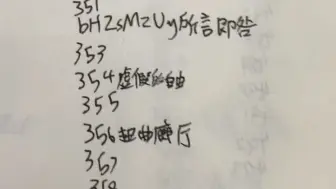 351
bHZsMzUy所言即答
353
354虚假的自由
355
356扭曲餐厅
367